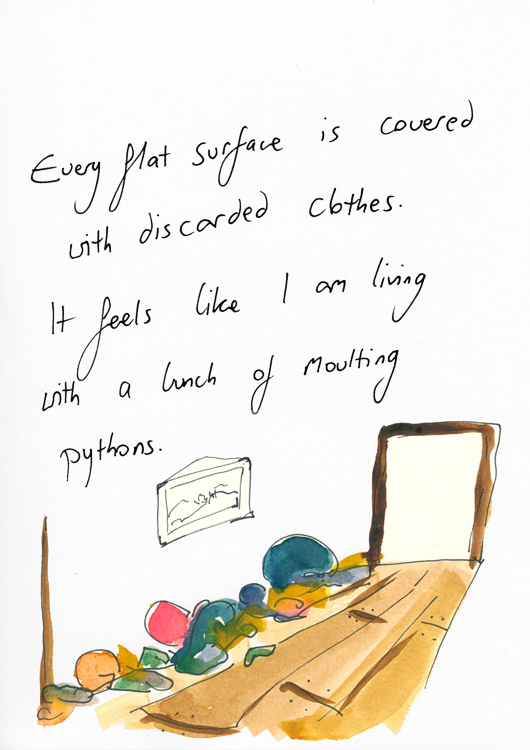 Every flat surface is covered
with discarded clothes.
It feels like I am living
with a bunch of moulting
pythons.